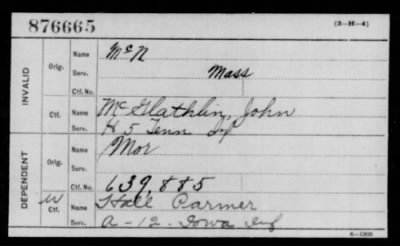 876665
(3-H-4)
INVALID
Orig.
Name McN
Serv. Mass
Ctf. No.
Ctf.
Name McGlathlin, John
Serv. H 5 Tenn Inf
DEPENDENT
Orig.
Name Mor
Serv.
Ctf. No. 639,885
W Ctf.
Name Hall Parmer
Serv. A-12-Iowa Inf